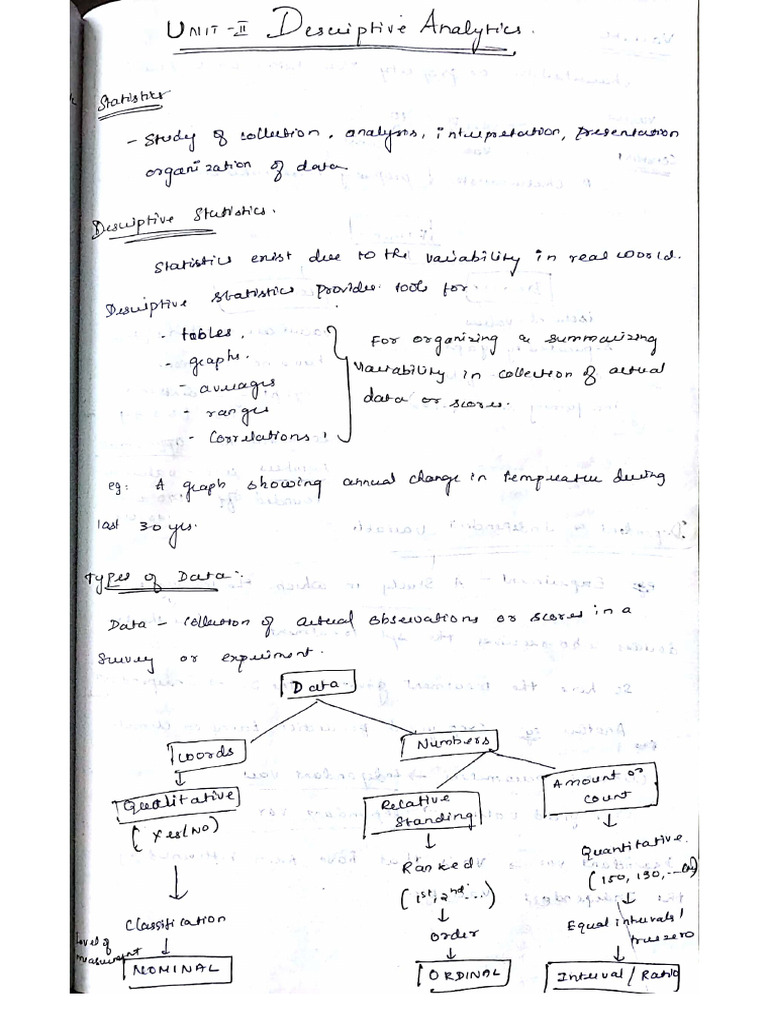 UNIT-II Descriptive Analytics.
Statistics
- Study of collection, analysis, interpretation, presentation
organization of data.
Descriptive Statistics.
Statistics exist due to the variability in real world.
Descriptive statistics provides tools for
- tables.
- graphs.
- averages
- ranges
- Correlations.
For organizing & summarizing
variability in collection of actual
data or scores.
eg: A graph showing annual change in temperature during
last 30 yrs.
Types of Data:
Data - collection of actual observations or scores in a
survey or experiment.
Data
Words
Numbers
Qualitative
(Yes/No)
Relative
Standing
Amount or
count
Ranked
(1st, 2nd ...)
Quantitative.
(150, 130, ...
Classification
order
Equal intervals/
true zero
Level of
measurement
NOMINAL
ORDINAL
Interval/Ratio